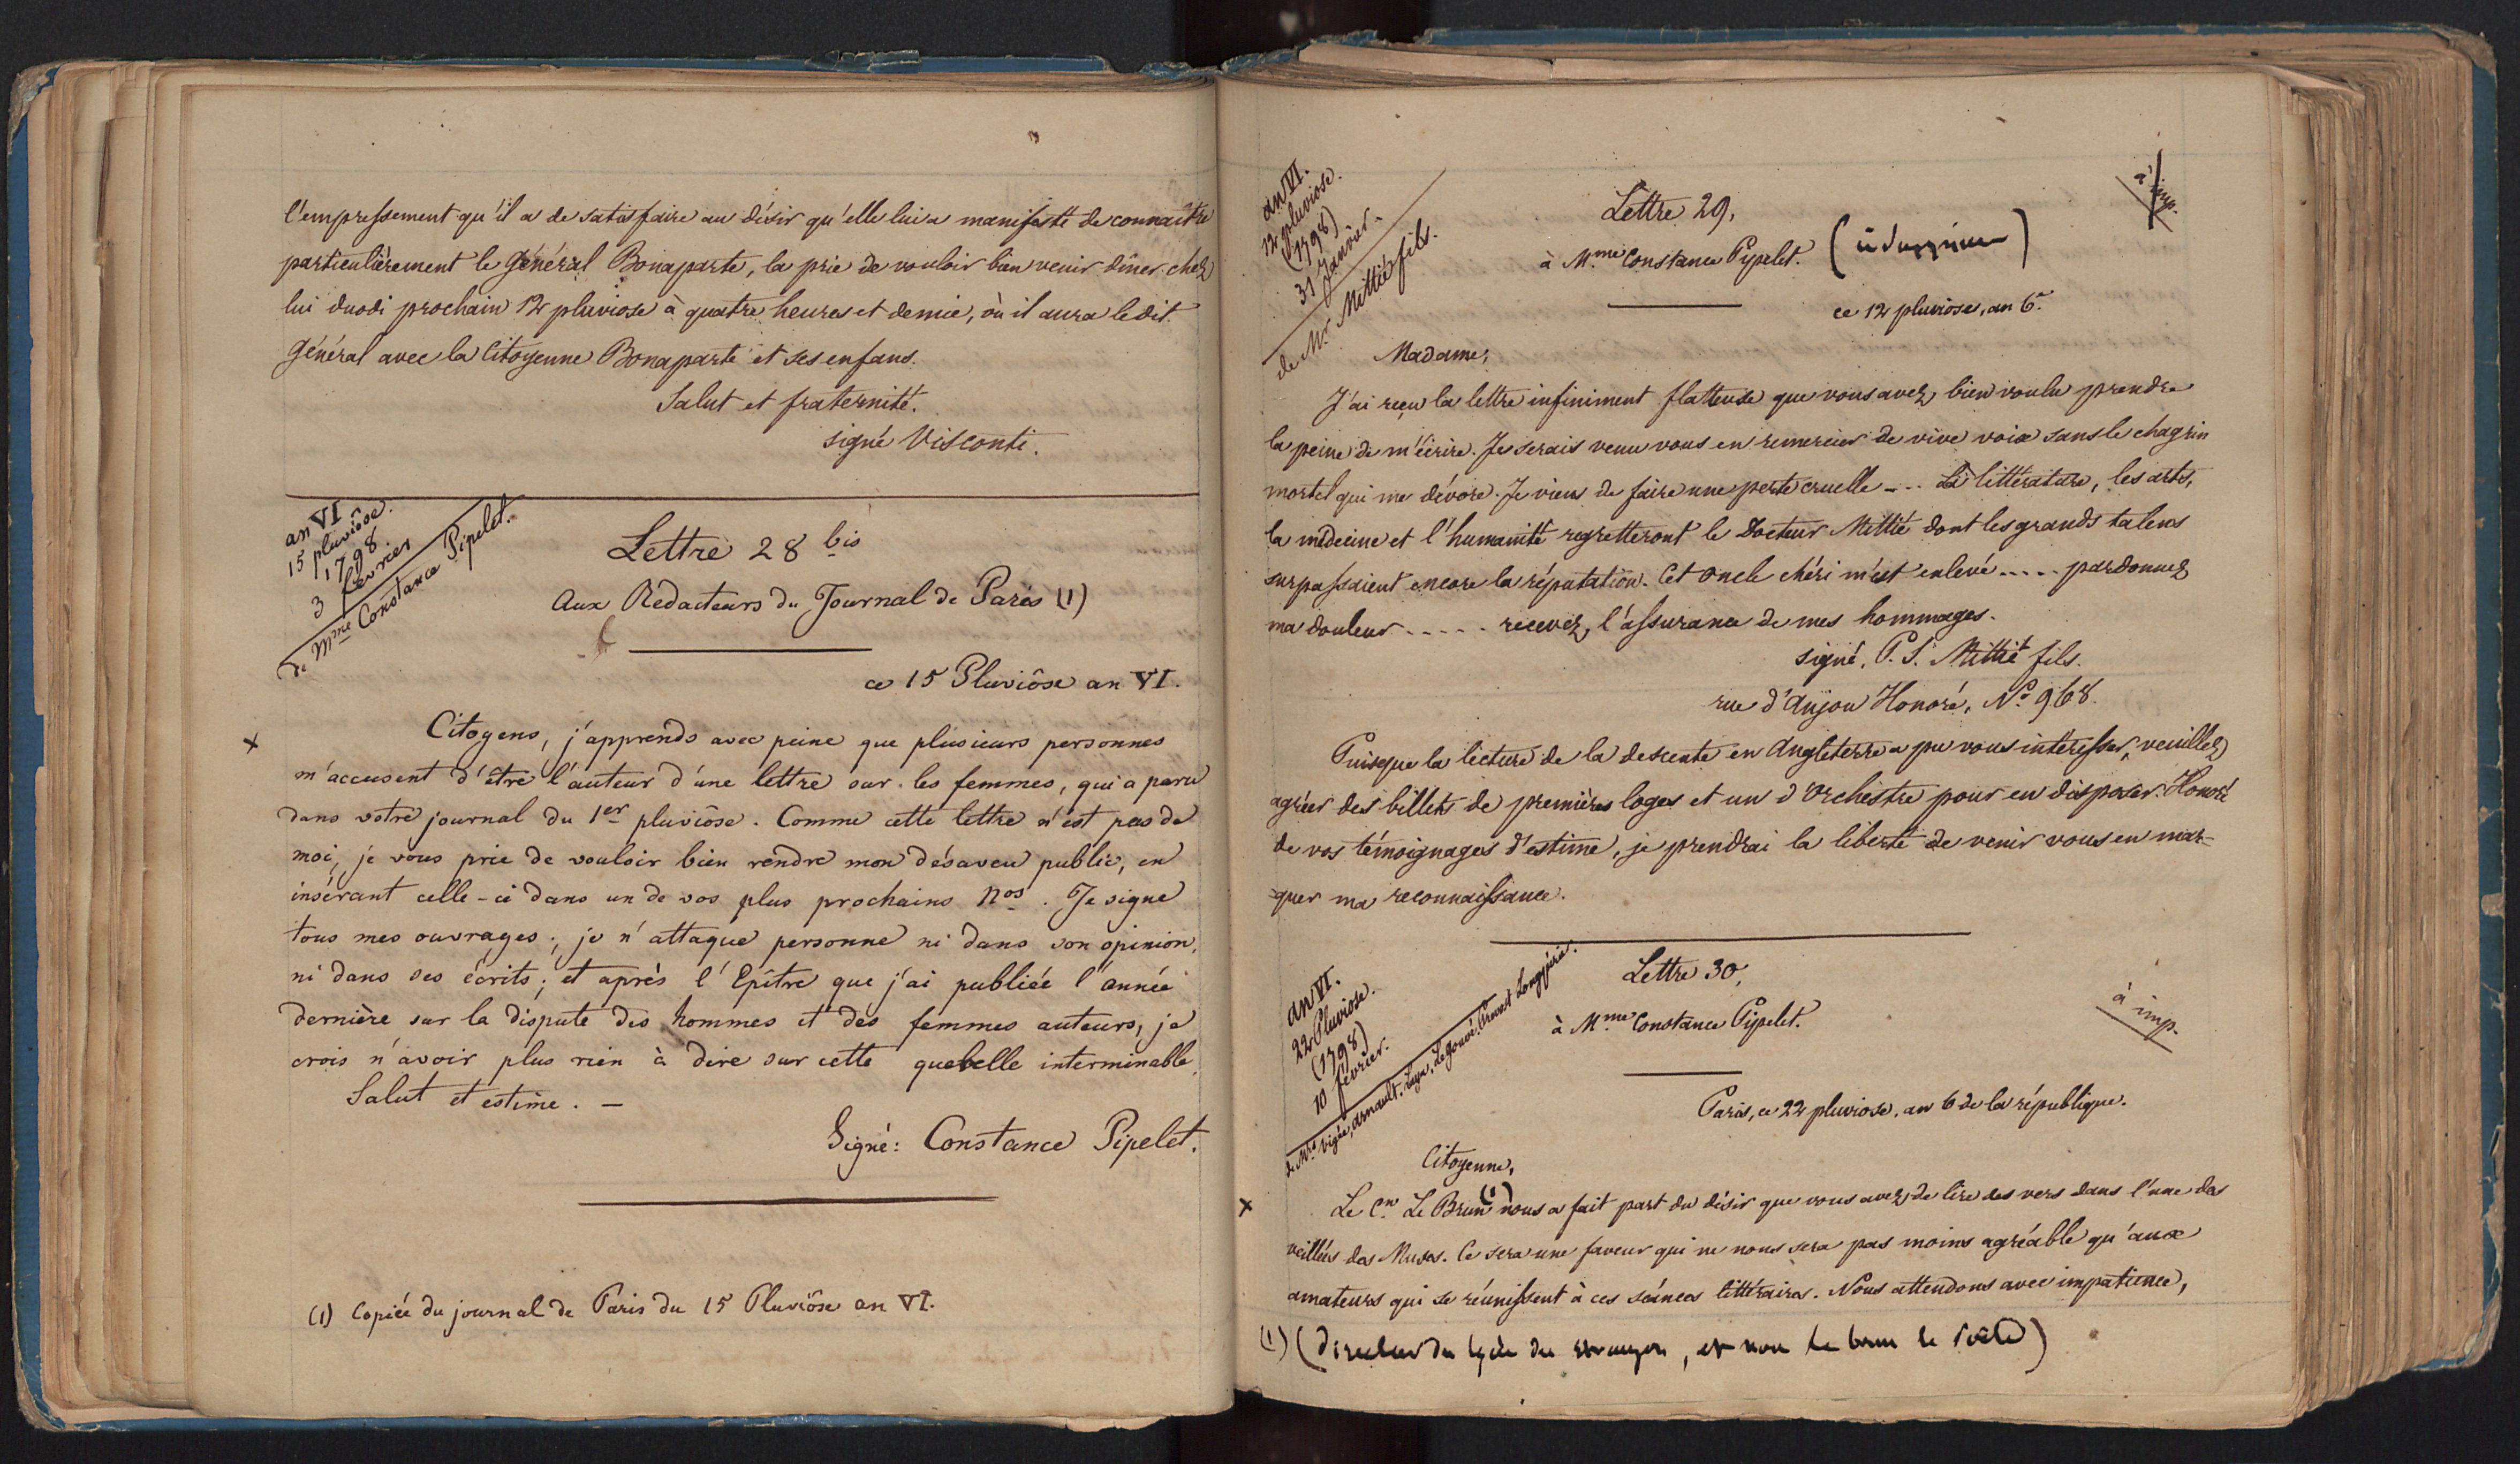 l'empressement qu'il a de satisfaire au désir qu'elle lui a manifesté de connaître
particulièrement le Général Bonaparte, la prie de vouloir bien venir dîner chez
lui duodi prochain 12 pluviose à quatre heures et demie, où il aura le dit
Général avec la Citoyenne Bonaparte et ses enfans.
Salut et fraternité.
signé Visconti.
an VI
15 pluviôse.
1798
3 février
de Mme Constance Pipelet.
Lettre 28 bis
Aux Rédacteurs du Journal de Paris (1)
ce 15 Pluviôse an VI.
x
Citoyens, j'apprends avec peine que plusieurs personnes
m'accusent d'être l'auteur d'une lettre sur les femmes, qui a paru
dans votre journal du 1er pluviôse. Comme cette lettre n'est pas de
moi, je vous prie de vouloir bien rendre mon désaveu public, en
insérant celle-ci dans un de vos plus prochains Nos. Je signe
tous mes ouvrages; je n'attaque personne ni dans son opinion,
ni dans ses écrits; et après l'Epître que j'ai publiée l'année
dernière sur la dispute des hommes et des femmes auteurs, je
crois n'avoir plus rien à dire sur cette querelle interminable
Salut et estime. —
Signé: Constance Pipelet.
(1) Copiée du journal de Paris du 15 Pluviôse an VI.
an VI.
12 pluviose.
(1798)
31 Janvier.
de Mr. Mittié fils.
à imp.
Lettre 29,
à Mme Constance Pypelet.
ce 12 pluviose, an 6e.
Madame,
J'ai reçu la lettre infiniment flatteuse que vous avez bien voulu prendre
la peine de m'écrire. Je serais venu vous en remercier de vive voix sans le chagrin
mortel qui me dévore. Je viens de faire une perte cruelle --- La littérature, les arts,
la médecine et l'humanité regretteront le Docteur Mittié dont les grands talens
surpassaient encore la réputation. Cet oncle chéri m'est enlevé ..... pardonnez
ma douleur ..... recevez, l'assurance de mes hommages.
signé, P. S. Mittié fils.
rue d'Anjou Honoré, No 968.
Puisque la lecture de la descente en Angleterre a pu vous intéresser, veuillez
agréer des billets de premières loges et un d'Orchestre pour en disposer. Honoré
de vos témoignages d'estime, je prendrai la liberté de venir vous en mar-
quer ma reconnaissance.
an VI.
22 Pluviose.
(1798)
10 février.
de Mrs Vigée, Arnault, Laya, Legouvé, Provost Longpérié.
Lettre 30,
à Mme Constance Pipelet.
à imp.
Paris, ce 22 pluviose, an 6 de la république.
Citoyenne,
x
Le Cen Le Brun (1) nous a fait part du désir que vous avez de lire des vers dans l'une des
veillées des Muses. Ce sera une faveur qui ne nous sera pas moins agréable qu'aux
amateurs qui se réunissent à ces séances littéraires. Nous attendons avec impatience,
(1) (directeur du lycée des étrangers, et non Le brun le Poëte)